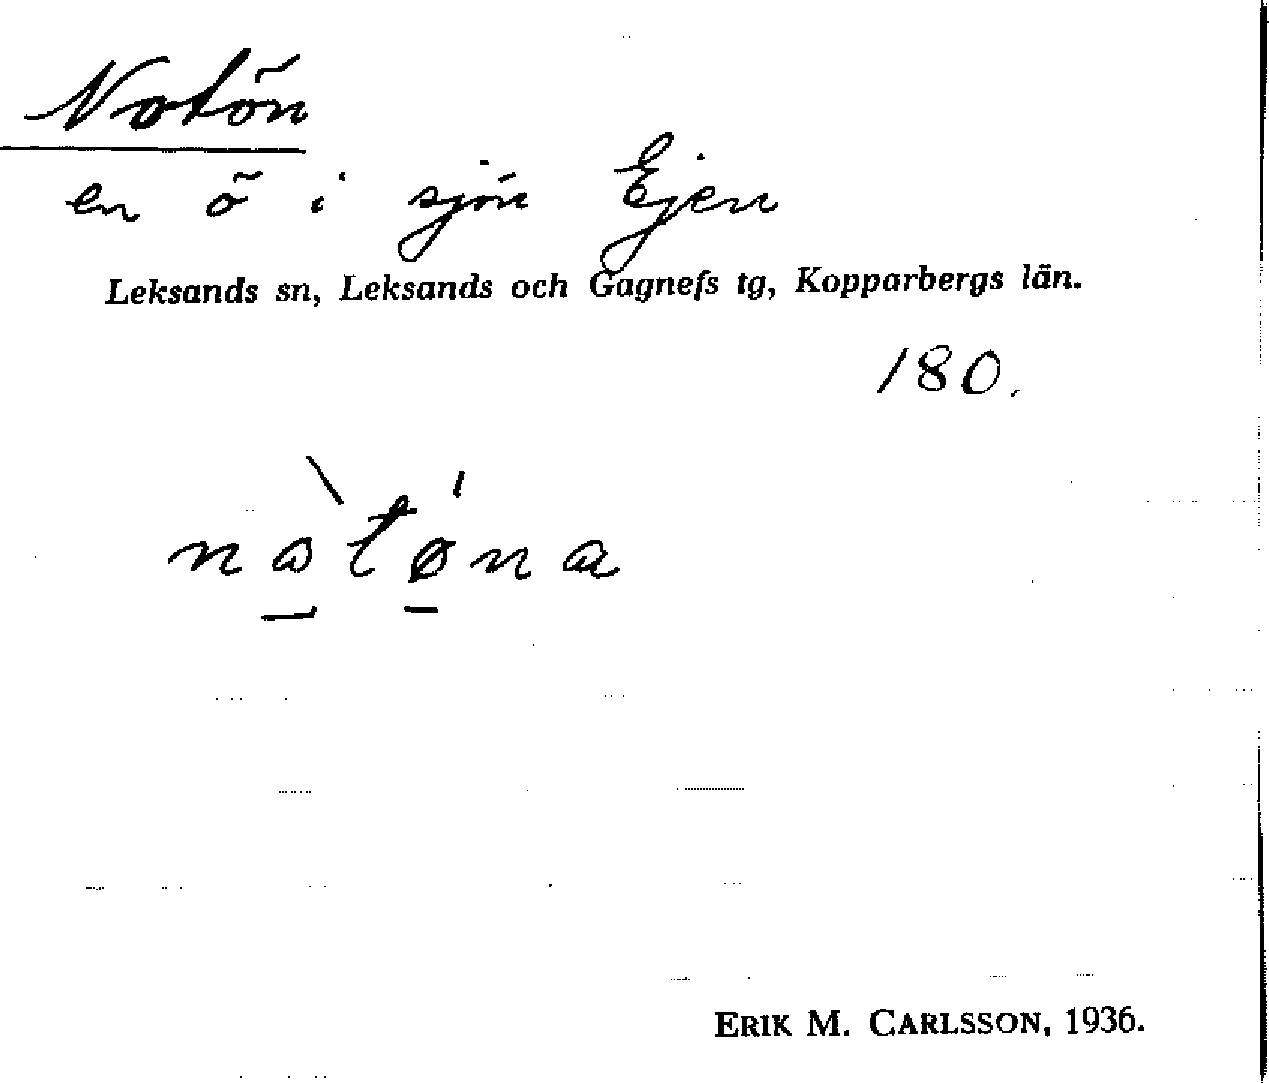 Notön
en ö i sjön Ejen
Leksands sn, Leksands och Gagnefs tg, Kopparbergs län.
180.
ERIK M. CARLSSON, 1936.